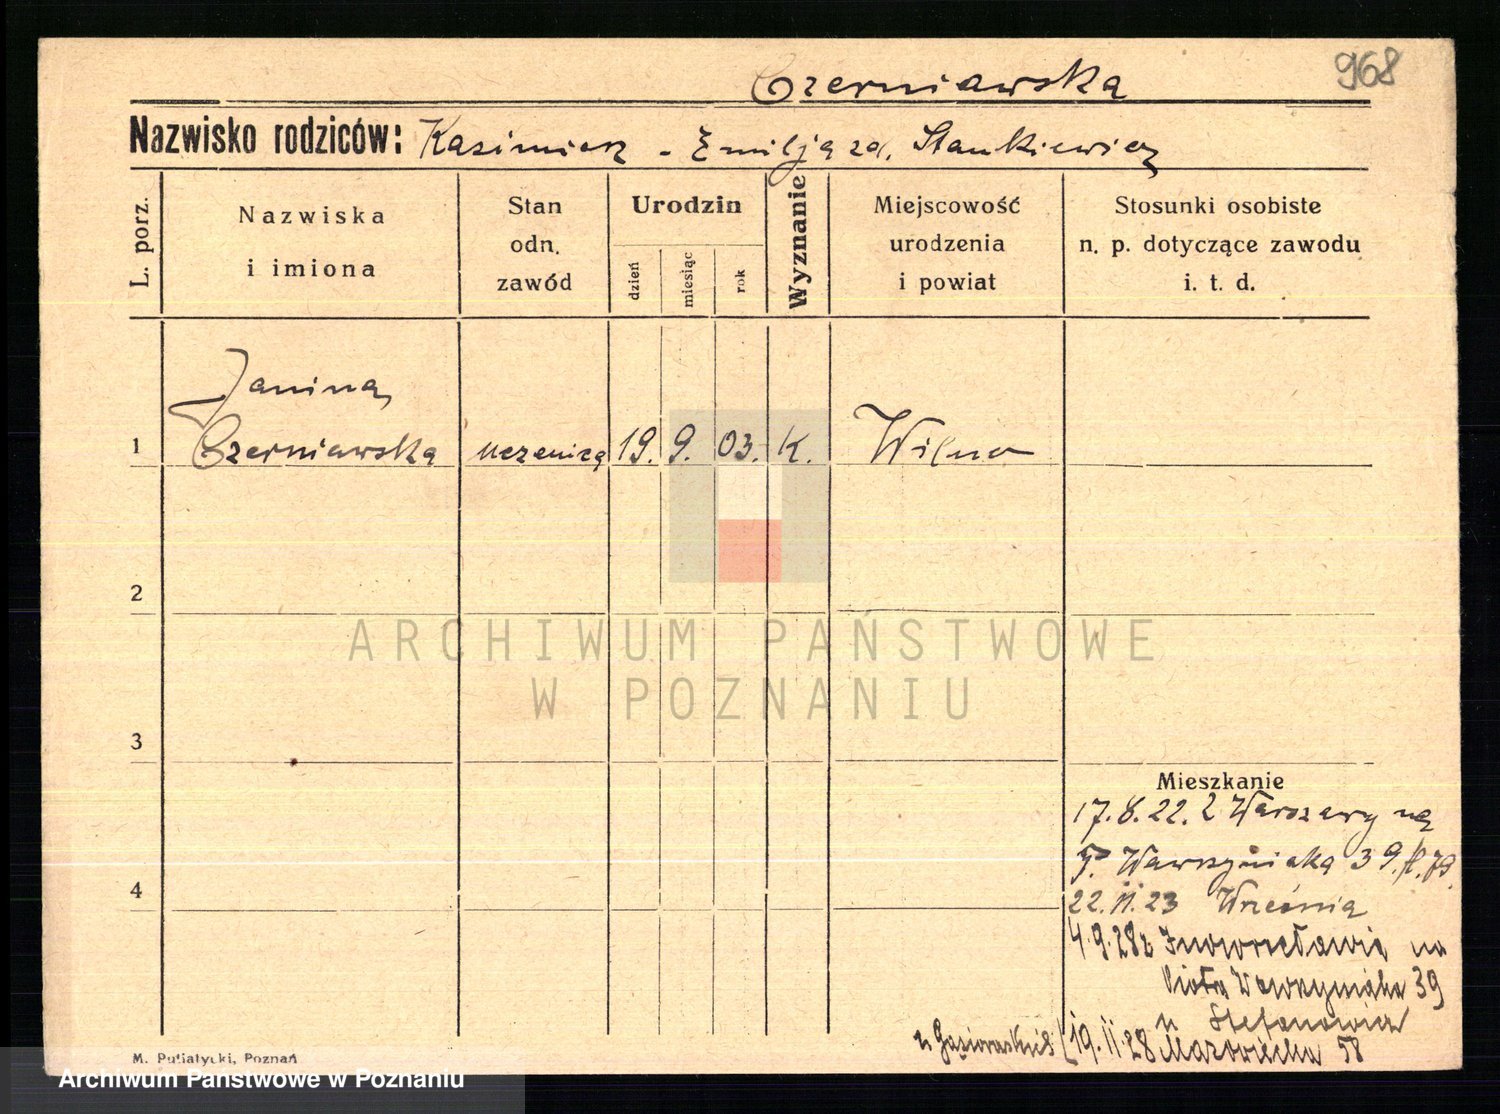 968
Czerniawska
Nazwisko rodziców: Kazimierz - Emilja zd. Stankiewicz
L. porz.
Nazwiska
i imiona
Stan
odn.
zawód
Urodzin
dzień
miesiąc
rok
Wyznanie
Miejscowość
urodzenia
i powiat
Stosunki osobiste
n. p. dotyczące zawodu
i. t. d.
Janina
1 Czerniawska uczenica 19. 9. 03. K. Wilno
2
ARCHIWUM PAŃSTWOWE
W POZNANIU
3
Mieszkanie
17.8.22. z Warszawy na
P. Wawrzyniaka 39.
4
22.11.23 Wrzesnia
4.9.28 z Inowrocławia na
Piotra Wawrzyniaka 39
u Stefanowicz
u Gąsiorowskich (19.11.28 Mazowiecka 58
M. Putiatycki, Poznań
Archiwum Państwowe w Poznaniu